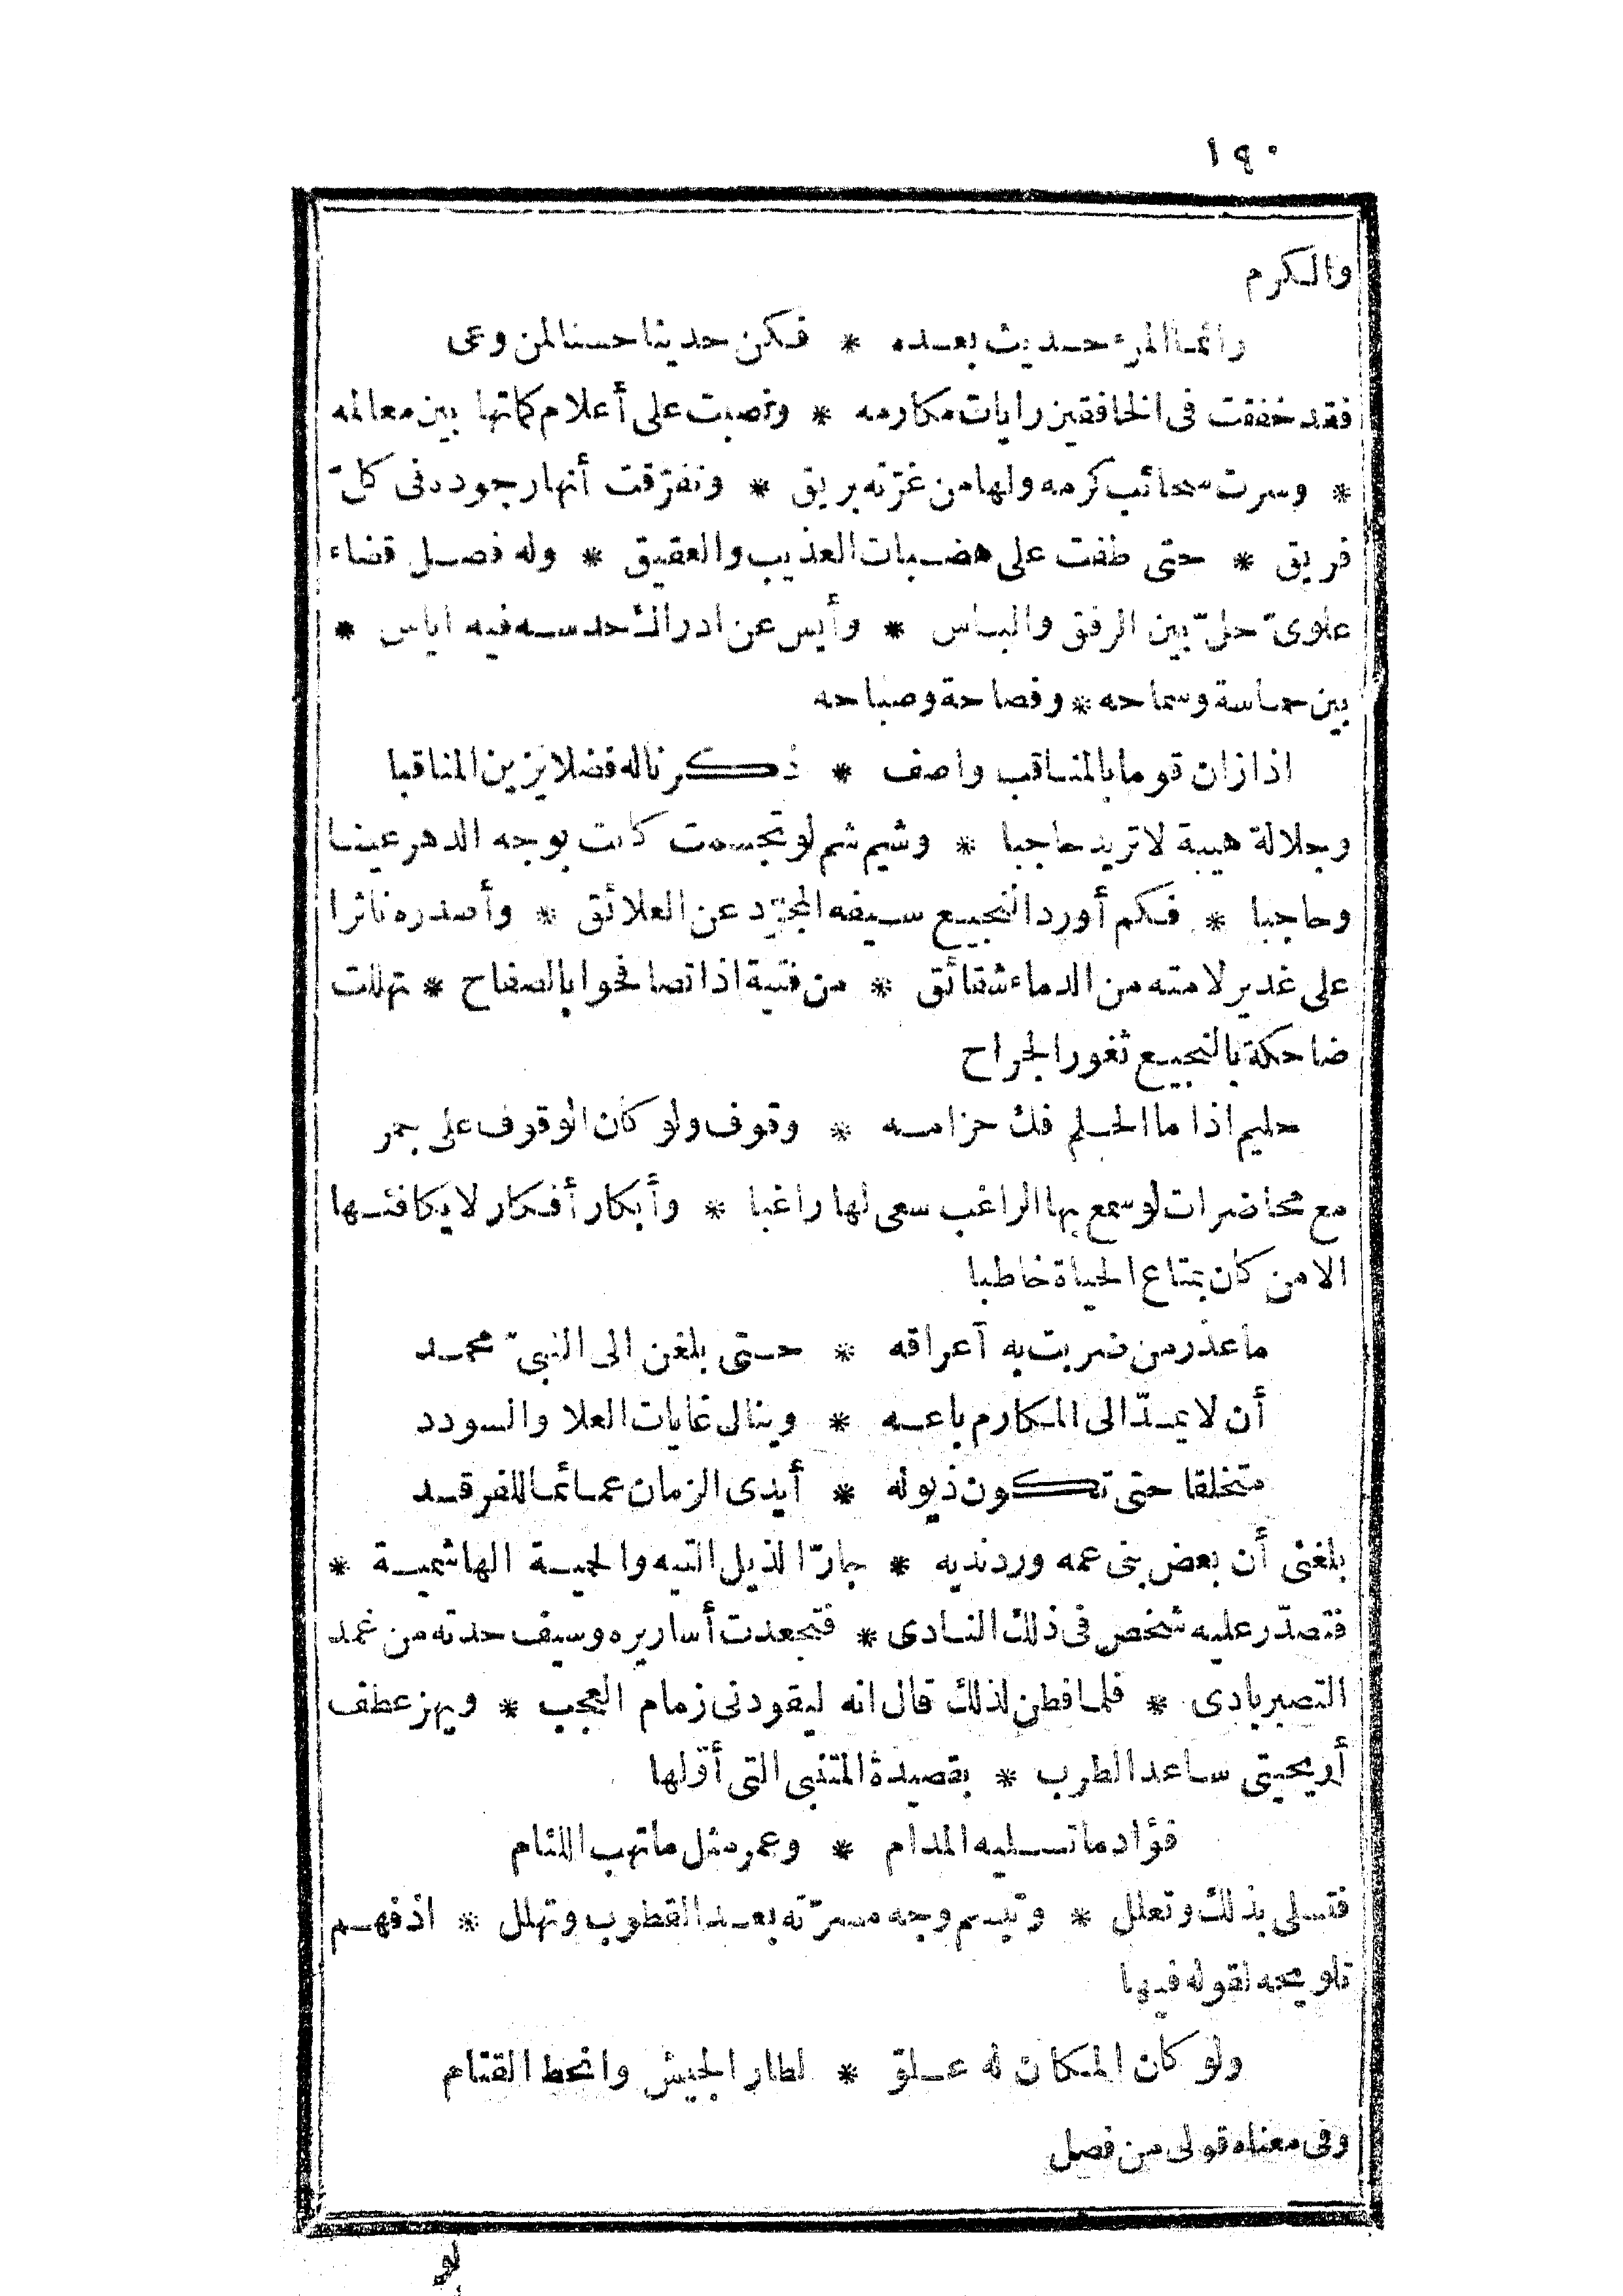 ١٩٠
والكرم
وانما المرء حديث بعده * فكن حديثا حسنا لمن وعى
فقد خفقت فى الخافقين رايات مكارمه * ونصبت على أعلام كماتها بين معالمه
* وسرت سحائب كرمه ولها من غرّته بريق * وتفرّقت أنهار جوده فى كلّ
فريق * حتى طفت على هضبات العذيب والعقيق * وله فصل قضاء
علوىّ حلّ بين الرفق والباس * وأيس عن ادراك حدسه فيه اياس *
بين حماسة وسماحه * وفصاحة وصباحه
اذا زان قوما بالمناقب واصف * ذكرنا له فضلا يزين المناقبا
وجلالة هيبة لا تريد حاجبا * وشيم شم لو تجسمت كانت بوجه الدهر عينا
وحاجبا * فكم أورد النجيع سيفه المجرّد عن العلائق * وأصدره ناثرا
على غدير لامته من الدماء شقائق * من فتية اذا تصافحوا بالصفاح * تهللت
ضاحكة بالنجيع ثغور الجراح
حليم اذا ما الحلم فك حزامه * وقوف ولو كان الوقوف على جمر
مع محاضرات لو سمع بها الراغب سعى لها راغبا * وأبكار أفكار لا يكافئها
الا من كان بمتاع الحياة خاطبا
ما عذر من ضربت به آعراقه * حتى بلغن الى النبىّ محمد
أن لا يمدّ الى المكارم باعه * وينال غايات العلا والسودد
متخلقا حتى تكون ذيوله * أيدى الزمان عمائما للفرقد
بلغنى أن بعض بنى عمه ورد نديه * جارّا لذيل التيه والحمية الهاشمية *
فتصدّر عليه شخص فى ذلك النادى * فتجعدت أساريره وسيف حدته من غمد
التصبر بادى * فلما فطن لذلك قال انه ليقودنى زمام العجب * ويهز عطف
أريحيتى ساعد الطرب * بقصيدة المتنبى التى أوّلها
فؤاد ما تسليه المدام * وعمر مثل ما تهب اللئام
فتسلى بذلك وتعلل * وتبسم وجه مسرّته بعد القطوب وتهلل * اذ فهم
تلويحه لقوله فيها
ولو كان المكان له علوّ * لطار الجيش وانحط القتام
وفى معناه قولى من فصل
لو